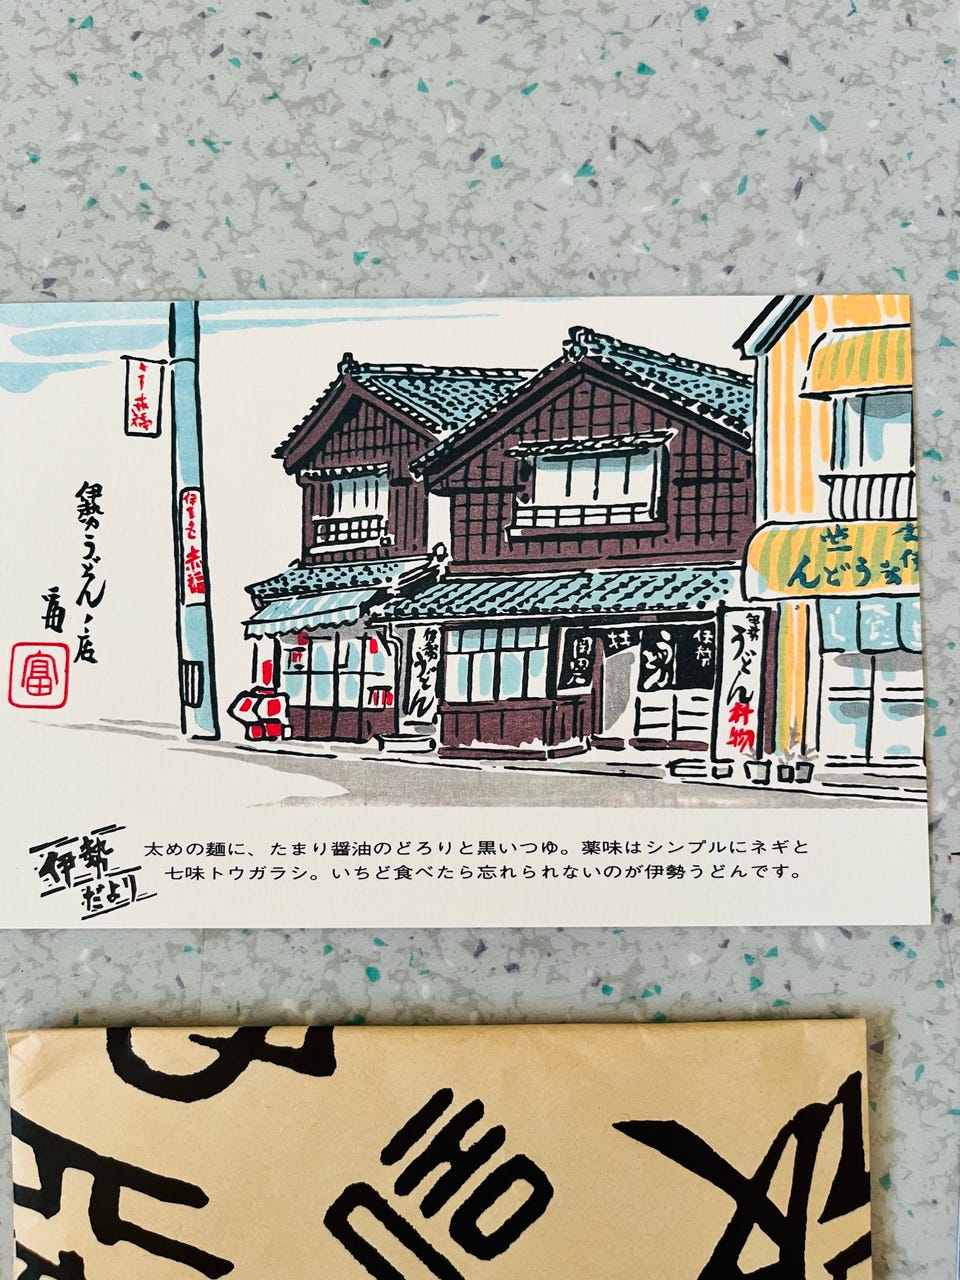 伊勢うどんノ店
富
赤福
赤福
伊勢
うどん
伊勢
うどん
伊勢
うどん
料物
伊
せ
うどん
食
伊勢
だより
太めの麺に、たまり醤油のどろりと黒いつゆ。薬味はシンプルにネギと
七味トウガラシ。いちど食べたら忘れられないのが伊勢うどんです。